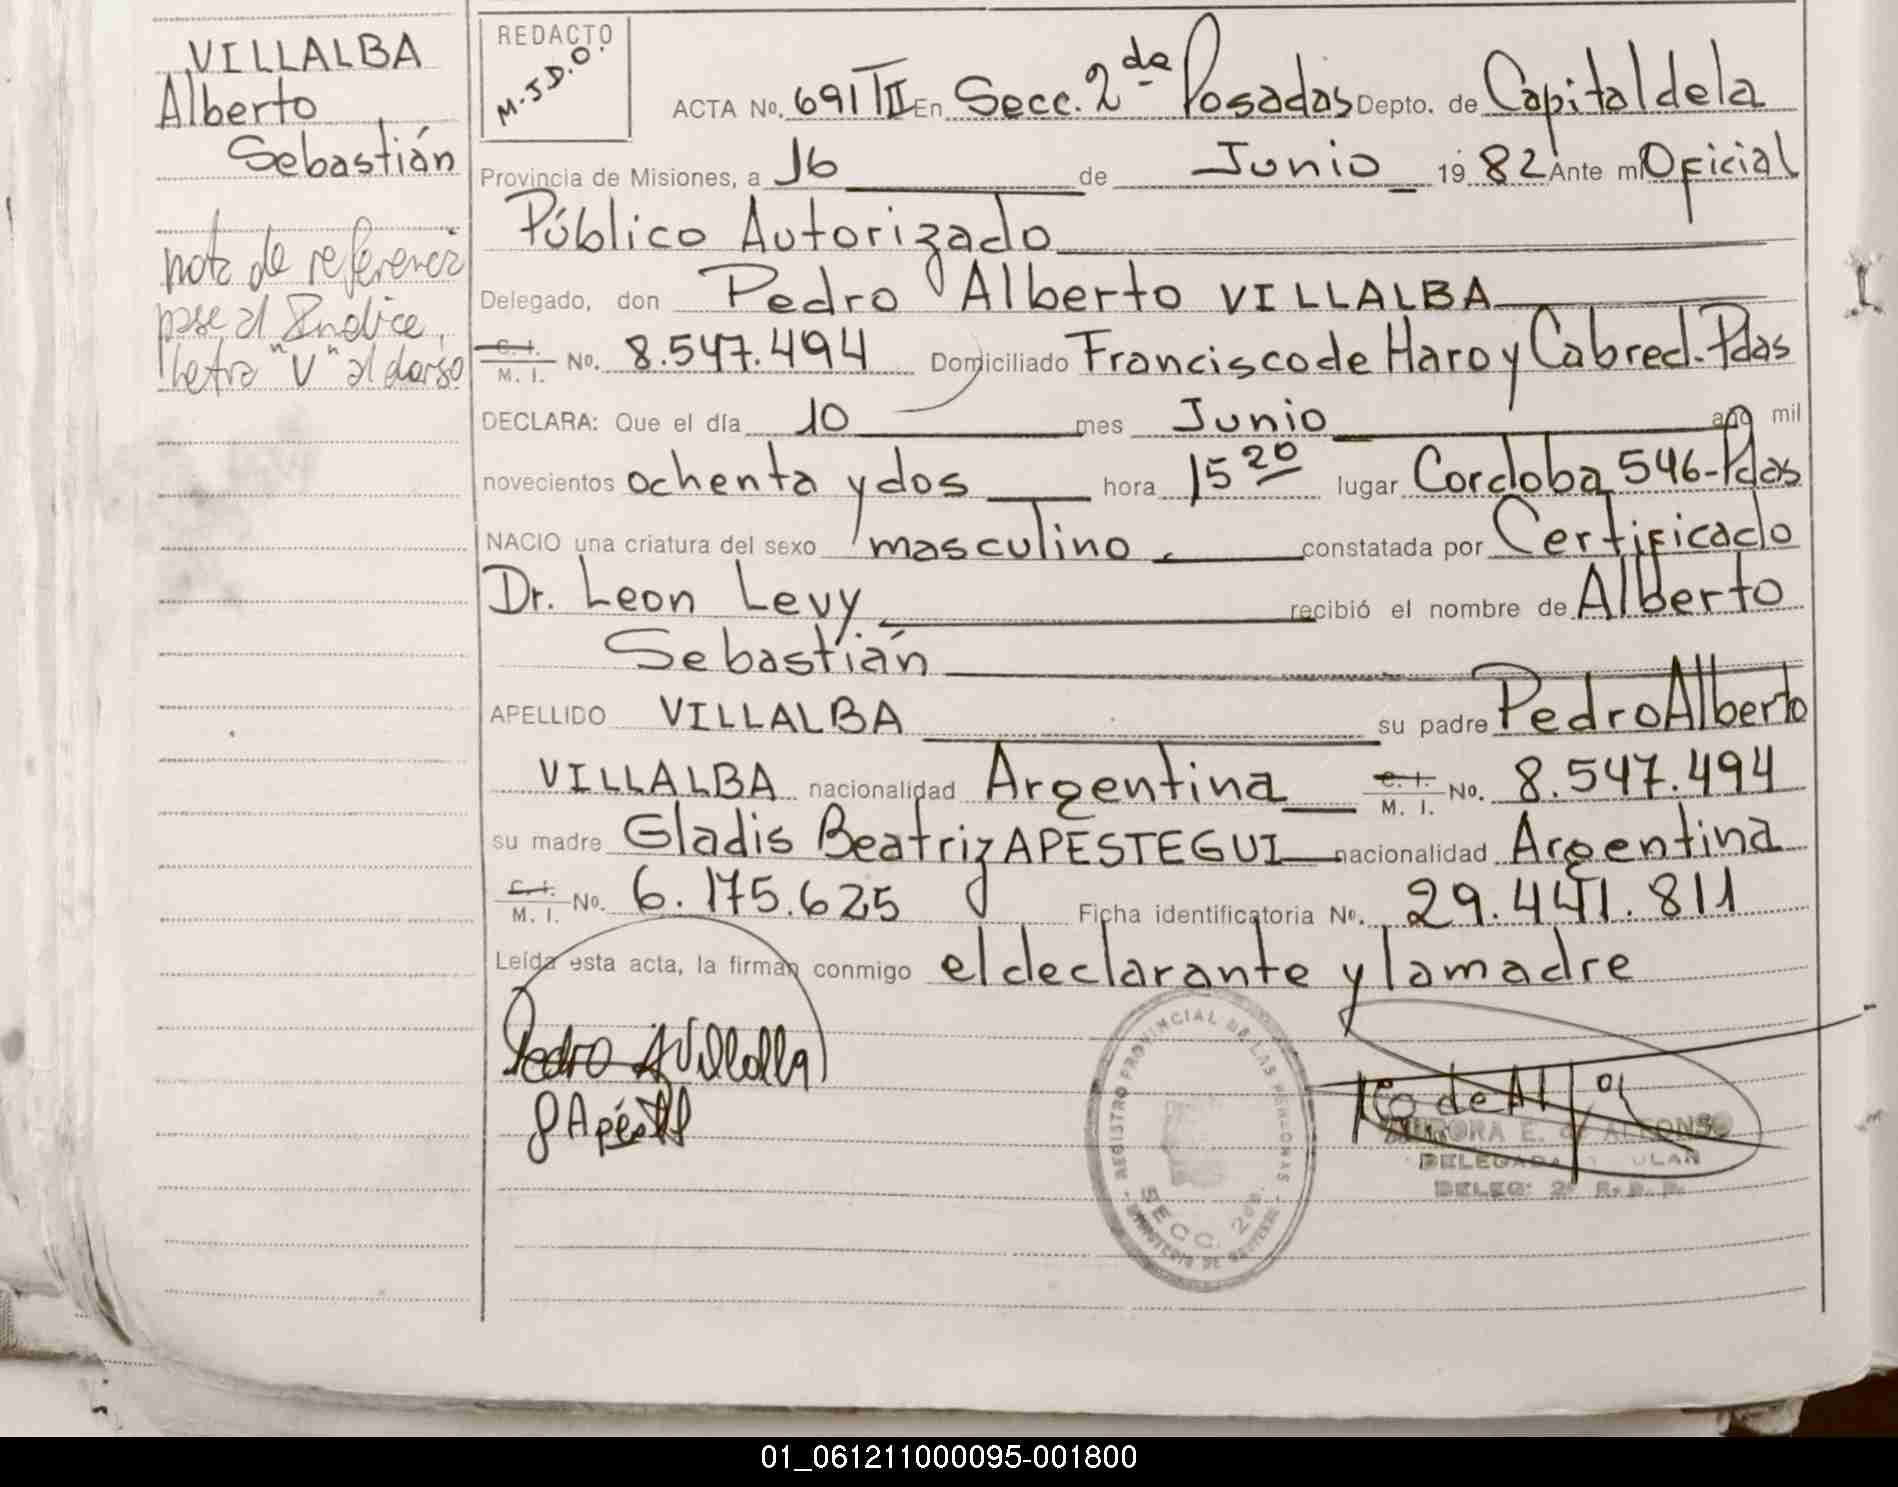 VILLALBA
Alberto
Sebastián
nota de referencia
pase al Indice,
letra "V" al dorso
REDACTO
M.J.D.O.
ACTA No. 691 TII En Secc. 2da Posadas Depto. de Capital de la
Provincia de Misiones, a 16 de Junio 1982 Ante mi Oficial
Público Autorizado
Delegado, don Pedro Alberto VILLALBA
C. I. M. I. No. 8.547.494 Domiciliado Francisco de Haro y Cabred. Pdas
DECLARA: Que el día 10 mes Junio año mil
novecientos ochenta y dos hora 15 20 lugar Cordoba 546-Pdas
NACIO una criatura del sexo masculino constatada por Certificado
Dr. Leon Levy recibió el nombre de Alberto
Sebastián
APELLIDO VILLALBA su padre Pedro Alberto
VILLALBA nacionalidad Argentina C. I. M. I. No. 8.547.494
su madre Gladis Beatriz APESTEGUI nacionalidad Argentina
C. I. M. I. No. 6.175.625 Ficha identificatoria No. 29.441.811
Leída esta acta, la firman conmigo el declarante y la madre
Pedro A Villalba
REGISTRO PROVINCIAL DE LAS PERSONAS
SECC. 2da.
E. de ALFONSO
DELEGADA
DELEG: 2ª R. P. P.
01_061211000095-001800